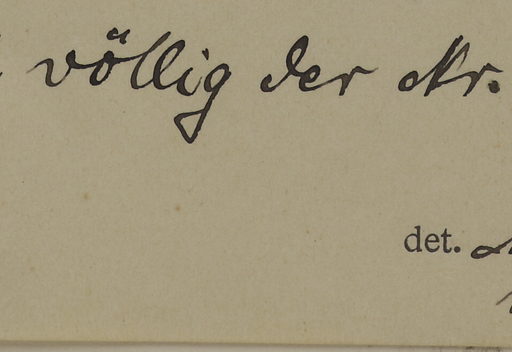 völlig der Nr.
det.